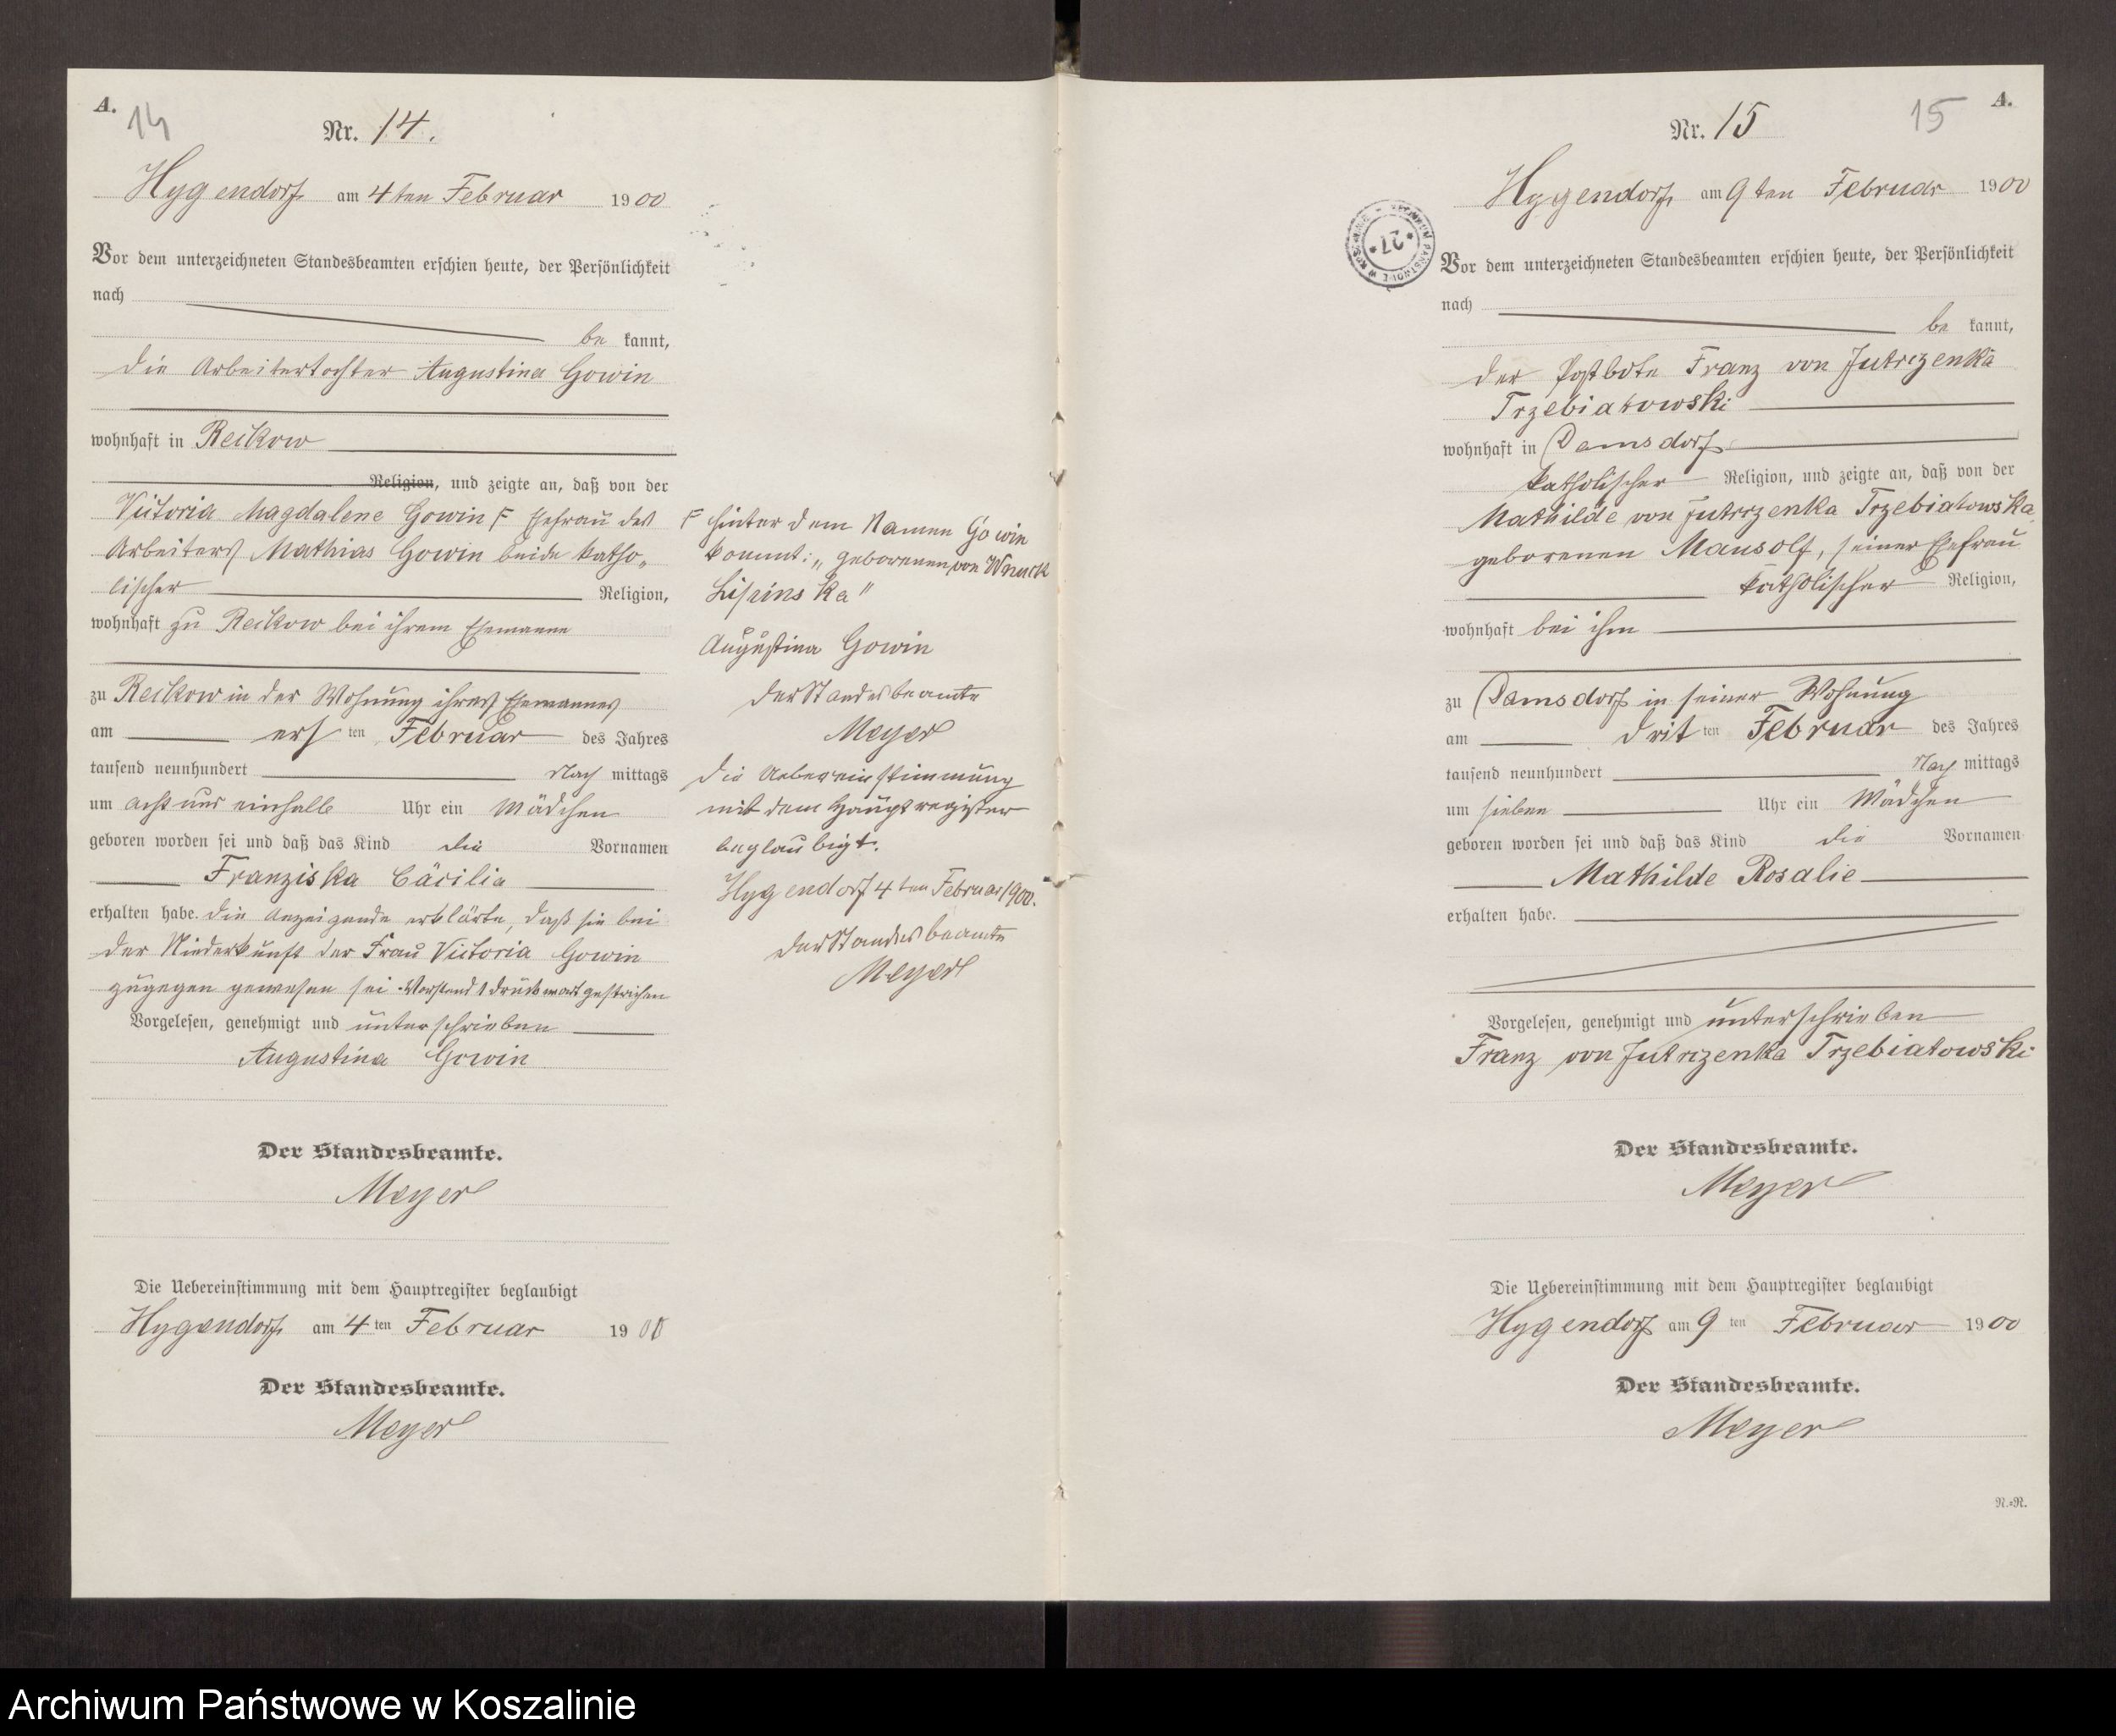 A.
14
Nr. 14.
Hygendorf am 4ten Februar 1900
Vor dem unterzeichneten Standesbeamten erschien heute, der Persönlichkeit
nach
be kannt,
die Arbeitertochter Augustina Gowin
wohnhaft in Reckow
Religion, und zeigte an, daß von der
Victoria Magdalene Gowin F Ehefrau des
Arbeiters Mathias Gowin beide katho„
lischer Religion,
wohnhaft zu Reckow bei ihrem Ehemanne
zu Reckow in der Wohnung ihres Ehemannes
am ers ten Februar des Jahres
tausend neunhundert Nach mittags
um acht und einhalb Uhr ein Mädchen
geboren worden sei und daß das Kind die Vornamen
Franziska Cäcilia
erhalten habe. Die Anzeigende erklärte, daß sie bei
der Niederkunft der Frau Victoria Gowin
zugegen gewesen sei. Vorstehend 1 Druckwort gestrichen
Vorgelesen, genehmigt und unterschrieben
Augustina Gowin
Der Standesbeamte.
Meyer
Die Uebereinstimmung mit dem Hauptregister beglaubigt
Hygendorf am 4 ten Februar 1900
Der Standesbeamte.
Meyer
F hinter dem Namen Gowin
kommt: „geborenen von Wnuck
Lipinska"
Augustina Gowin
der Standesbeamte
Meyer
Die Uebereinstimmung
mit dem Hauptregister
beglaubigt.
Hygendorf 4ten Februar 1900.
Der Standesbeamte
Meyer
A.
15
Nr. 15
27
Hygendorf am 9ten Februar 1900
Vor dem unterzeichneten Standesbeamten erschien heute, der Persönlichkeit
nach
be kannt,
der Postbote Franz von Jutrzenka
Trzebiatowski
wohnhaft in Damsdorf
katholischer Religion, und zeigte an, daß von der
Mathilde von Jutrzenka Trzebiatowska
geborenen Mausolf, seiner Ehefrau
katholischer Religion,
wohnhaft bei ihm
zu Damsdorf in seiner Wohnung
am drit ten Februar des Jahres
tausend neunhundert Nach mittags
um sieben Uhr ein Mädchen
geboren worden sei und daß das Kind die Vornamen
Mathilde Rosalie
erhalten habe.
Vorgelesen, genehmigt und unterschrieben
Franz von Jutrzenka Trzebiatowski
Der Standesbeamte.
Meyer
Die Uebereinstimmung mit dem Hauptregister beglaubigt
Hygendorf am 9 ten Februar 1900
Der Standesbeamte.
Meyer
N.=N.
Archiwum Państwowe w Koszalinie